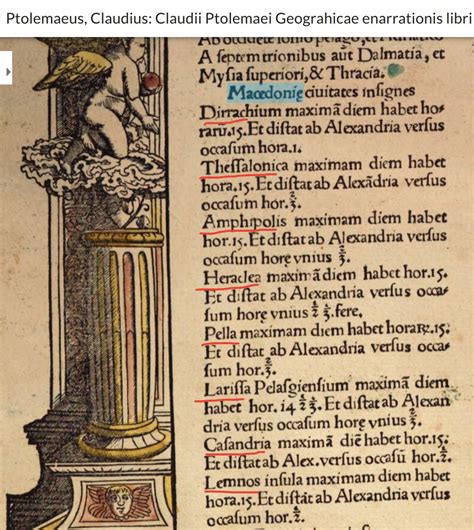 Ptolemaeus, Claudius: Claudii Ptolemaei Geograhicae enarrationis libri
Ab occidete Ionio pelago,
A septemtrionibus aūt Dalmatia, et
Mysia superiori, & Thracia.
Macedonię ciuitates insignes
Dirrachium maximā diem habet ho⸗
raru.15. Et distat ab Alexandria versus
occasum hora.1.
Thessalonica maximam diem habet
hora.15. Et distat ab Alexādria versus
occasum hor.
Amphipolis maximam diem habet
hor.15. Et distat ab Alexandria versus
occasum horę vnius
Heraclea maximā diem habet hor.15.
Et distat ab Alexandria versus occa⸗
sum horę vnius fere.
Pella maximam diem habet horarę.15.
Et distat ab Alexandria versus occa⸗
sum hor.
Larissa Pelasgiensium maximā diem
habet hor. 14 Et distat ab Alexan
dria versus occasum horę vnius
Casandria maximā diē habet hor.15.
Et distat ab Alex. versus occasū hor.
Lemnos insula maximam diem habet
hora.15. Et distāt ab Alexandria versus
occasum hor.